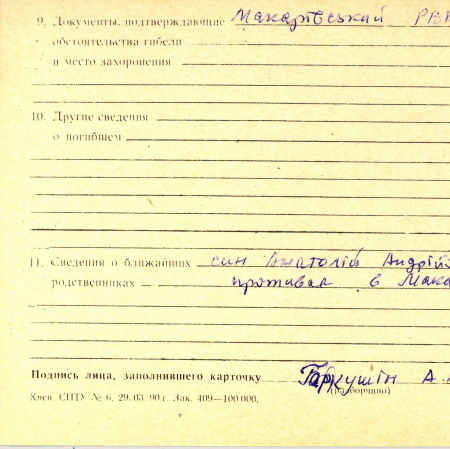 9. Документы, подтверждающие Макарівський РВК
обстоятельства гибели
и место захоронения
10. Другие сведения
о погибшем
11. Сведения о ближайших син Анатолій Андрій
родственниках проживає в Мака
Подпись лица, заполнившего карточку Гаркушін А.
(разборчиво)
Киев. СПТУ № 6. 29. 03. 90 г. Зак. 409—100 000.